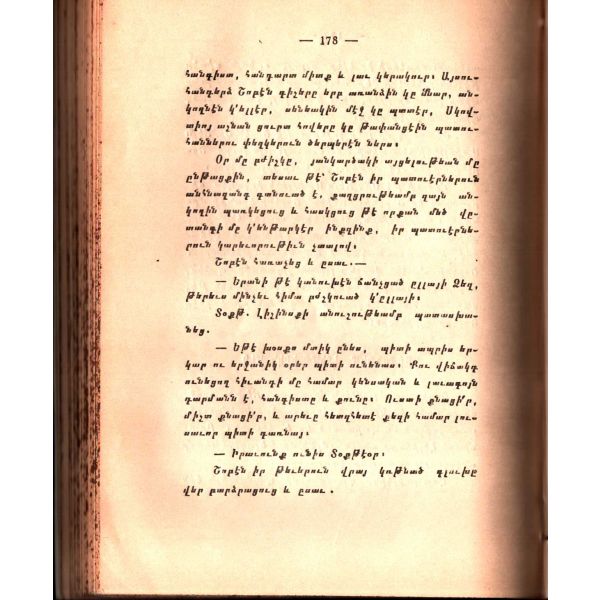 — 178 —
հանգիստ, հանդարտ միտք և լաւ կերակուր։ Այսու-
հանդերձ Շոբէն գիշերը երբ առանձին կը մնար, ան-
կողնէն կ՚ելլէր, սենեակին մէջ կը պտտէր, Սկով-
տիոյ աշնան ցուրտ հովերը կը թափանցէին պատու-
հաններու փեղկերուն ծերպերէն ներս։
Օր մը բժիշկը, յանկարծակի այցելութեան մը
ընթացքին, տեսաւ թէ՝ Շոբէն իր պատուէրներուն
անհնազանդ գտնուած է, քաղցրութեամբ զայն ան-
կողին պառկեցուց և հասկցուց թէ որքան մեծ վը-
տանգի մը կ՚ենթարկէր ինքզինք, իր պատուէրնե-
րուն կարեւորութիւն չտալով։
Շոբէն հառաչեց և ըսաւ.—
— Երանի թէ կանուխէն ճանչցած ըլլայի Ձեզ,
թերեւս մինչեւ հիմա բժշկուած կ՚ըլլայի։
Տօքթ. Լիշինսքի անուշութեամբ պատասխա-
նեց.
— Եթէ խօսքս մտիկ ընես, պիտի ապրիս եր-
կար ու երջանիկ օրեր պիտի ունենաս։ Քու վիճակդ
ունեցող հիւանդի մը համար կենսական և լաւագոյն
դարմանն է, հանգիստը և քունը։ Ուստի քնացի՛ր,
միշտ քնացի՛ր, և արեւը հետզհետէ քեզի համար լու-
սաւոր պիտի դառնայ։
— Իրաւունք ունիս Տօքթէօր։
Շոբէն իր թեւերուն վրայ կռթնած գլուխը
վեր բարձրացուց և ըսաւ.